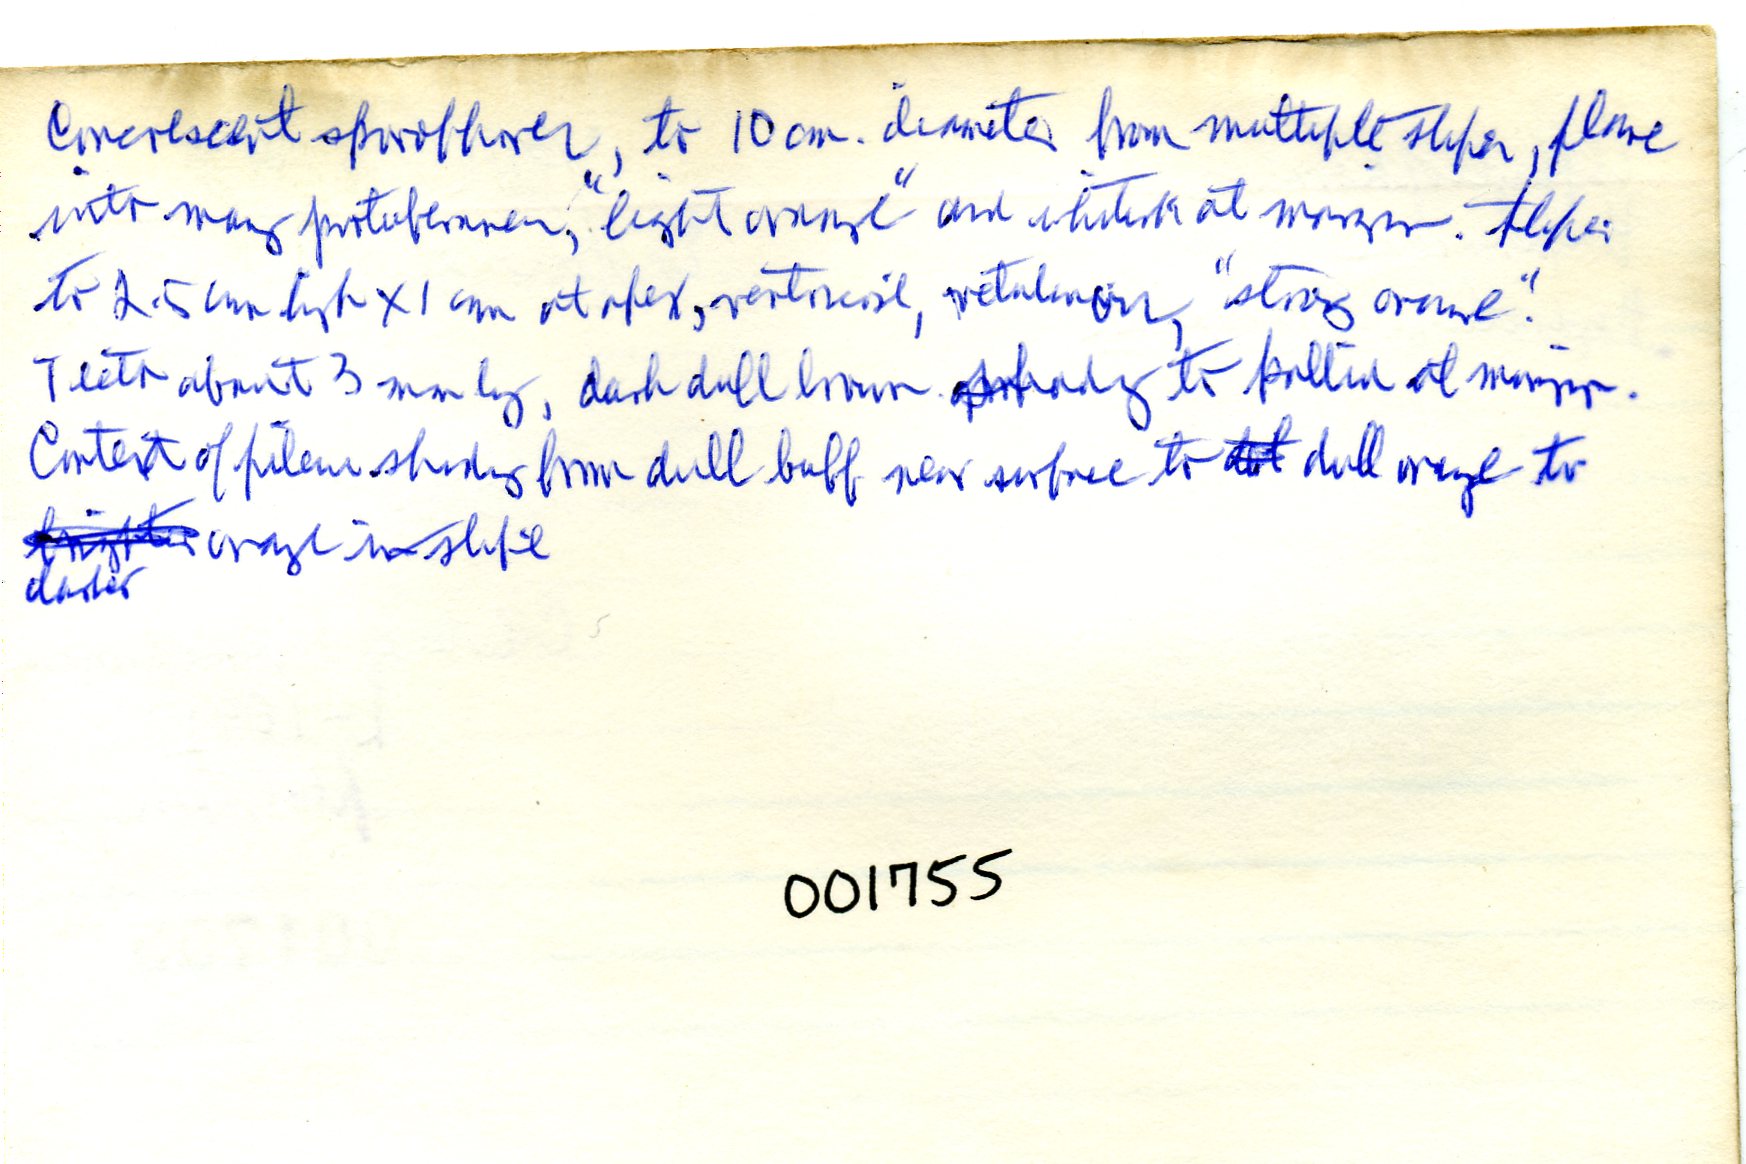 Concrescent sporophores, to 10 cm. diameter from multiple stipes, plane
into many protuberances, "light orange" and whitish at margin. Stipes
to 2.5 cm high x 1 cm at apex, "strong orange".
Teeth about 3 mm long, dark dull brown shading to pallid at margin.
Context of pileus shading from dull buff near surface to dull orange to
brighter orange in stipe
darker
001755